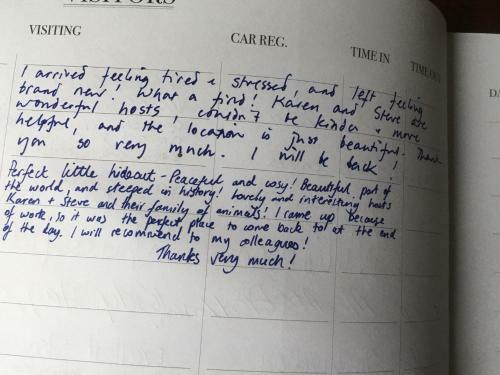 VISITORS
VISITING CAR REG. TIME IN TIME OUT DA
I arrived feeling tired & stressed, and left feeling
brand new! What a find! Karen and Steve are
wonderful hosts, couldn't be kinder & more
helpful, and the location is just beautiful. Thank
you so very much. I will be back!
Perfect little hideout - Peaceful and cosy! Beautiful part of
the world, and steeped in history! Lovely and interesting hosts
Karen + Steve and their family of animals! I came up because
of work, so it was the perfect place to come back to at the end
of the day. I will recommend to my colleagues!
Thanks very much!